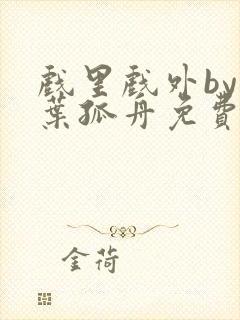 戲里戲外by
葉孤舟免費
金荷